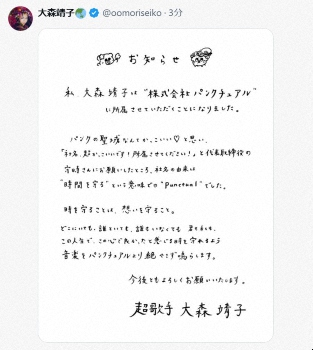 大森靖子🌏 @oomoriseiko・3分
お知らせ
私、大森靖子は"株式会社パンクチュアル"
に所属させていただくことになりました。
パンクの聖域なんてかっこいい♡と思い、
「社名、超かっこいいです！所属させてください！」と代表取締役の
守時さんにお願いしたところ、社名の由来は
"時間を守る"という意味での"Punctual"でした。
時を守ることは、想いを守ること。
どこにいても、誰といても、誰もいなくても
この人生で、この心で良かったと感じる時を守れるよう
音楽をパンクチュアルより絶やさず鳴らします。
今後ともよろしくお願いいたします。
超歌手 大森靖子